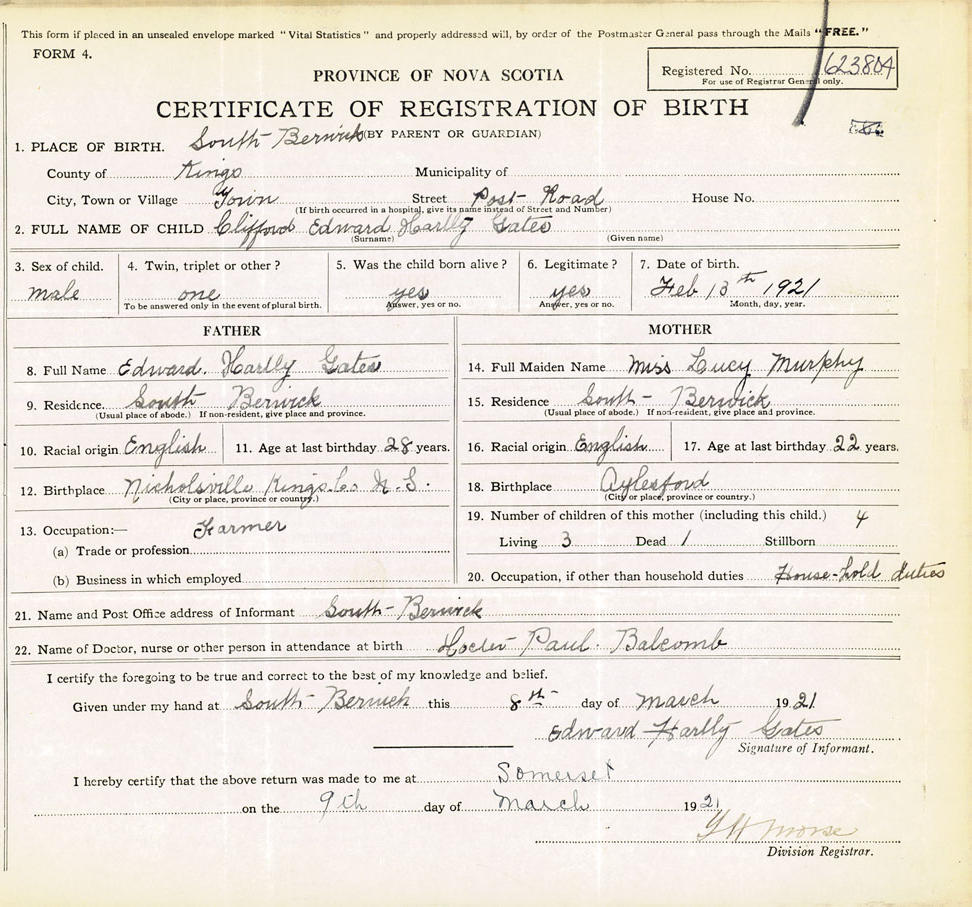 This form if placed in an unsealed envelope marked "Vital Statistics" and properly addressed will, by order of the Postmaster General pass through the Mails "FREE."
FORM 4.
Registered No. 623804
For use of Registrar General only.
PROVINCE OF NOVA SCOTIA
CERTIFICATE OF REGISTRATION OF BIRTH
(BY PARENT OR GUARDIAN)
1. PLACE OF BIRTH. South Berwick
County of Kings Municipality of
City, Town or Village Town Street Post Road House No.
(If birth occurred in a hospital, give its name instead of Street and Number)
2. FULL NAME OF CHILD Clifford Edward Hartly Gates
(Surname) (Given name)
3. Sex of child. 4. Twin, triplet or other? 5. Was the child born alive? 6. Legitimate? 7. Date of birth.
male one yes yes Feb 13th 1921
To be answered only in the event of plural birth. Answer, yes or no. Answer, yes or no. Month, day, year.
FATHER
8. Full Name Edward. Hartly Gates
9. Residence. South Berwick
(Usual place of abode.) If non-resident, give place and province.
10. Racial origin English 11. Age at last birthday 28 years.
12. Birthplace Nicholsville Kings. Co. N. S.
(City or place, province or country.)
13. Occupation:— Farmer
(a) Trade or profession
(b) Business in which employed
MOTHER
14. Full Maiden Name Miss Lucy Murphy
15. Residence South - Berwick
(Usual place of abode.) If non-resident, give place and province.
16. Racial origin English 17. Age at last birthday 22 years.
18. Birthplace Aylesford
(City or place, province or country.)
19. Number of children of this mother (including this child.) 4
Living 3 Dead 1 Stillborn
20. Occupation, if other than household duties House-hold duties
21. Name and Post Office address of Informant South-Berwick
22. Name of Doctor, nurse or other person in attendance at birth Paul. Balcomb
I certify the foregoing to be true and correct to the best of my knowledge and belief.
Given under my hand at South-Berwick this 8th day of March 1921
Edward Hartly Gates
Signature of Informant.
I hereby certify that the above return was made to me at Somerset
on the 9th day of March 1921
Morse
Division Registrar.